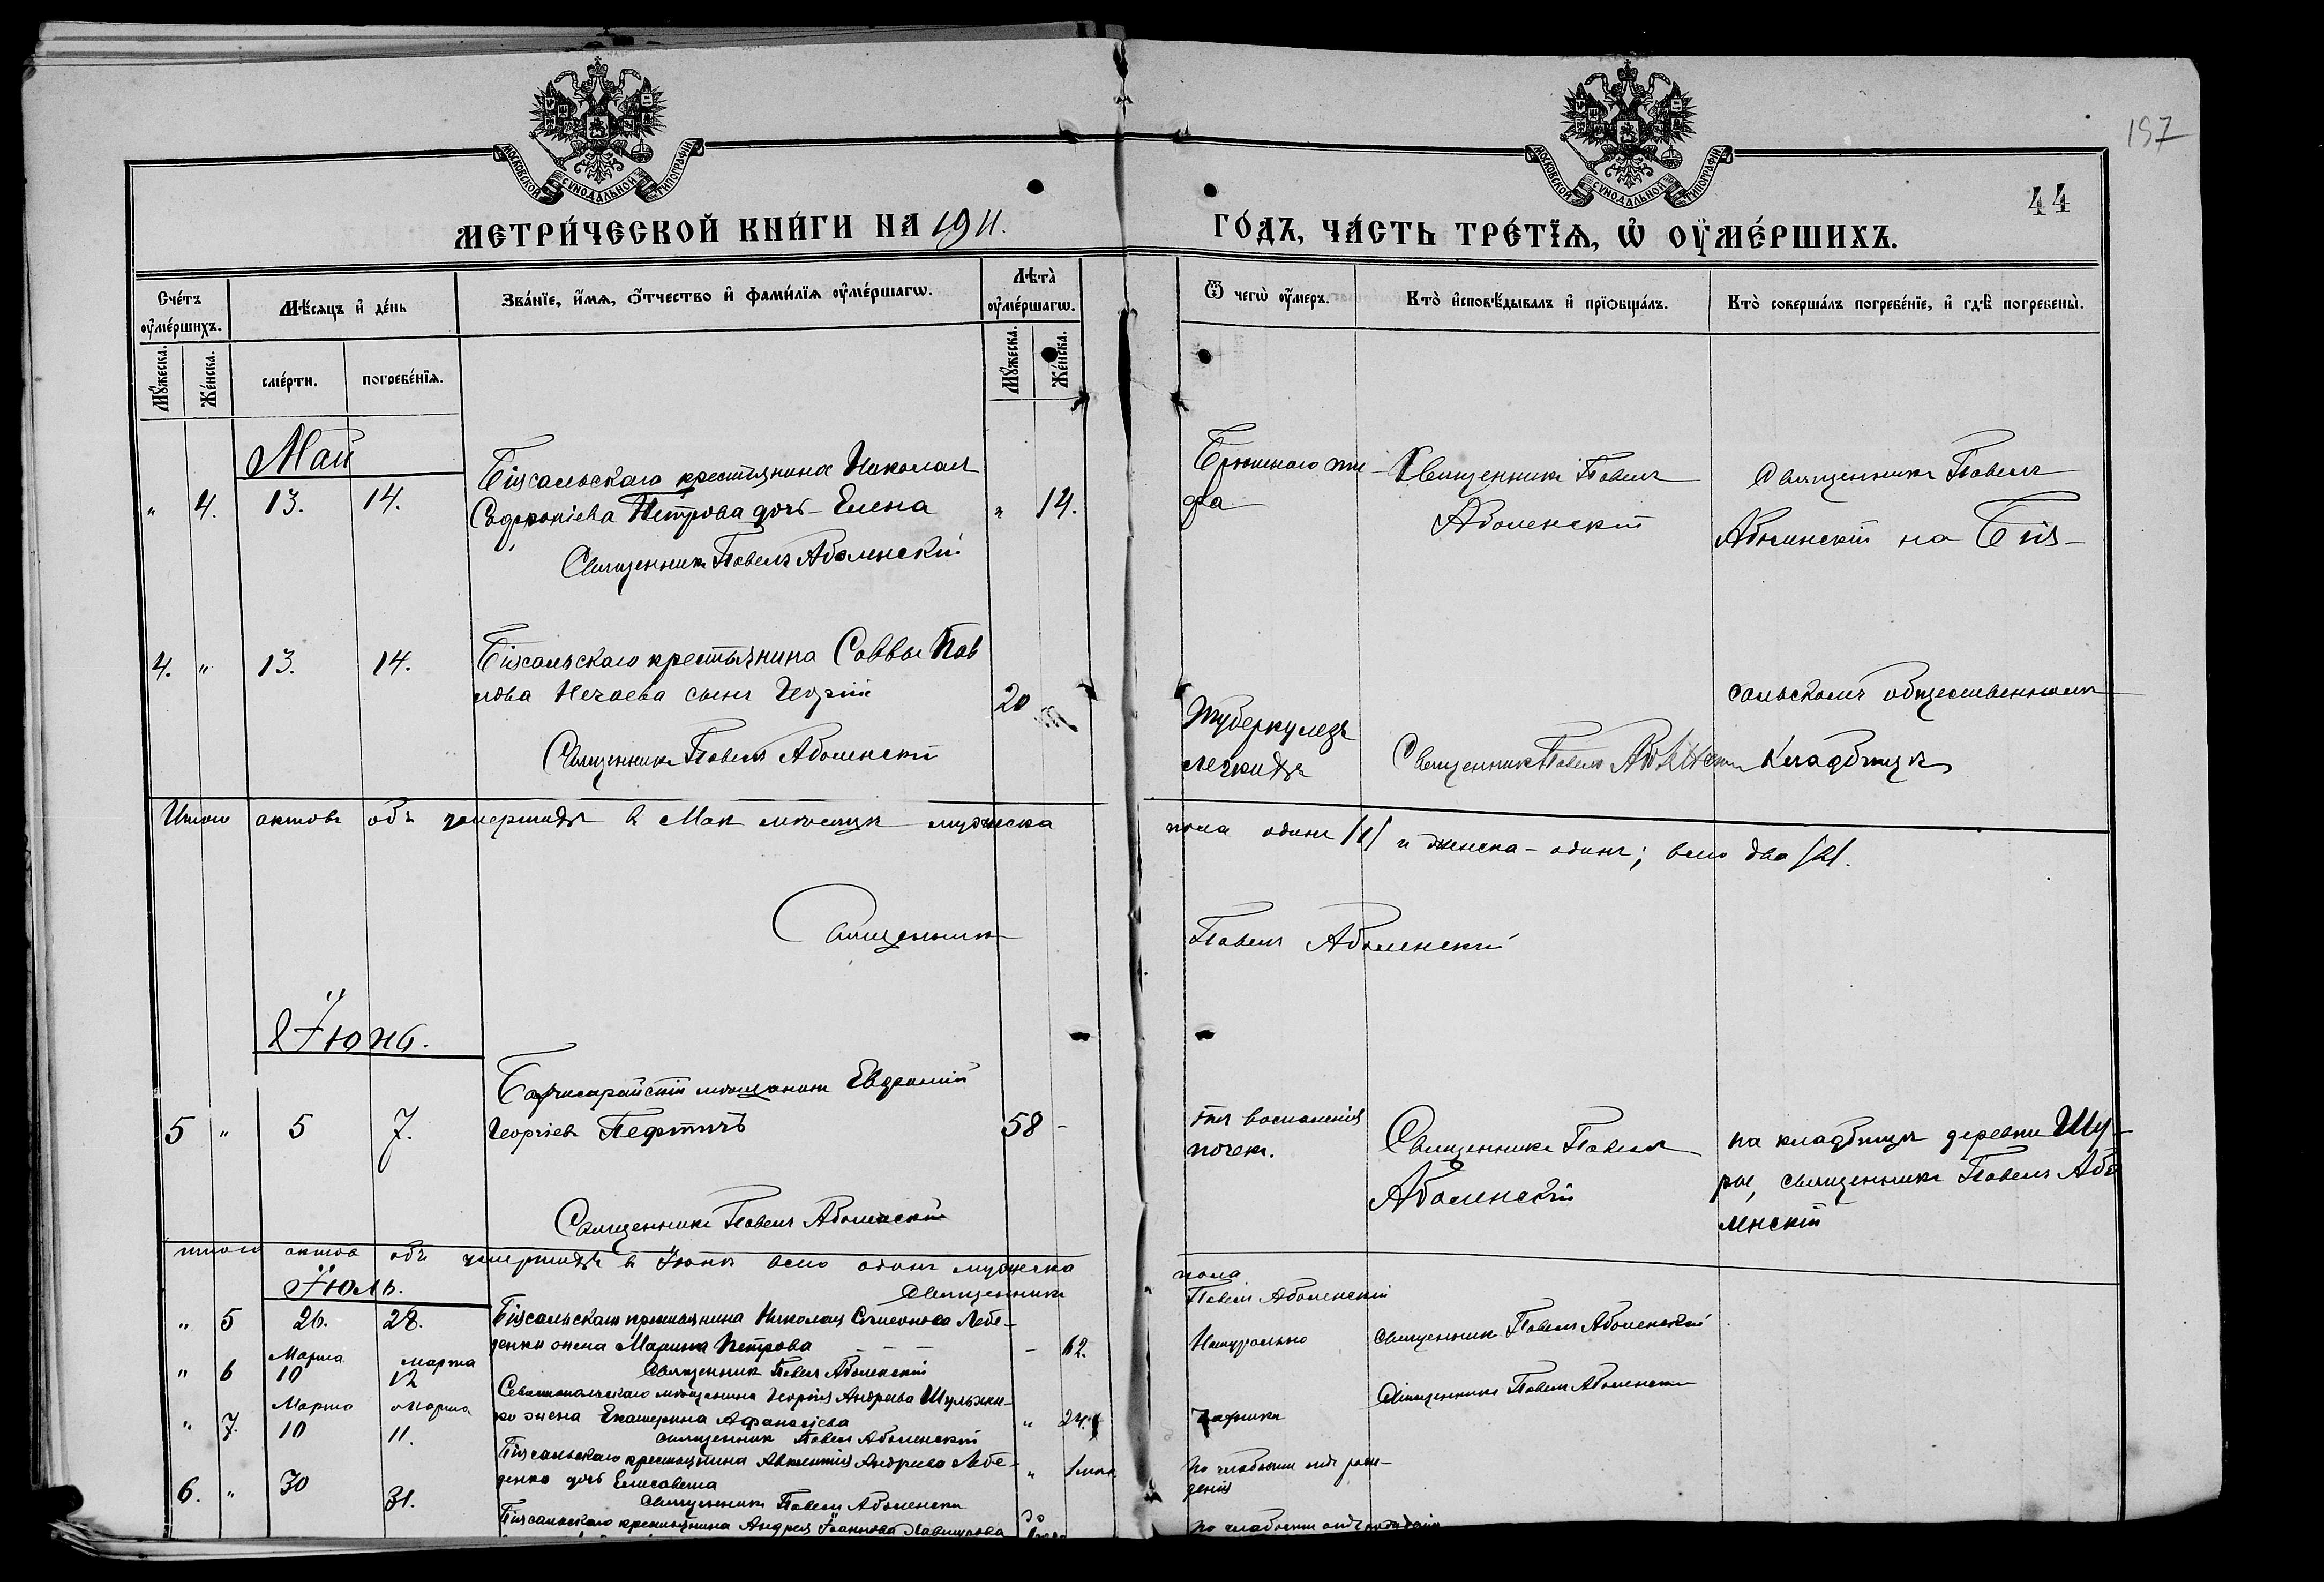 МОСКОВСКОЙ СѴНОДАЛЬНОЙ ТИПОГРАФІИ
МОСКОВСКОЙ СѴНОДАЛЬНОЙ ТИПОГРАФІИ
157
44
МЕТРИ́ЧЕСКОЙ КНИ́ГИ НА 1911.
ГО́ДЪ, ЧА́СТЬ ТРЕ́ТЇѦ, Ѡ҆ ОУ҆МЕ́РШИХЪ.
Сче́тъ оу҆ме́ршихъ.
Мѣ́сяцъ и҆ де́нь
Зва́нїе, и҆́мѧ, ѻ҆́тчество и҆ фами́лїѧ оу҆ме́ршагѡ.
Лѣта̀ оу҆ме́ршагѡ.
Ѿ чегѡ̀ оу҆́меръ.
Кто̀ и҆сповѣ́дывалъ и҆ прїѡбща́лъ.
Кто̀ соверша́лъ погребе́нїе, и҆ гдѣ̀ погребены̀.
Мꙋ́жеска.
Же́нска.
сме́рти.
погребе́нїѧ.
Мꙋ́жеска.
Же́нска.
Май
„ 4. 13. 14.
Біясальскаго крестьянина Николая
Софронiева Петрова дочь - Елена
„ 14.
Священникъ Павелъ Аболенскiй
Брюшного ти-
фа
Священникъ Павелъ
Аболенскiй
Священникъ Павелъ
Аболенскiй на Бія-
4. „ 13. 14.
Біясальскаго крестьянина Саввы Пав
лова Нечаева сынъ Георгiй
20
Священникъ Павелъ Аболенскiй
Туберкулезъ
легкихъ
Священникъ Павелъ Аболенскiй
сальскомъ общественномъ
кладбищѣ
Итого актовъ объ умершихъ въ Маѣ мѣсяцѣ мужеска
пола одинъ /1/ и женска - одинъ; всего два /2/.
Священникъ
Павелъ Аболенскiй
Іюнь.
5 „ 5 7.
Бахчисарайскiй мѣщанинъ Евфимiй
Георгiевъ
58 -
Священникъ Павелъ Аболенскiй
воспаленiя
почекъ.
Священникъ Павелъ
Аболенскiй
на кладбищѣ деревни Шу-
ры, священникъ Павелъ Або
ленскiй
итого актовъ объ умершихъ въ Іюнѣ всего одинъ мужеска
пола
Священникъ
Павелъ Аболенскiй
Іюль.
„ 5 26. 28.
Біясальскаго крестьянина Николая Симеонова Лебе-
денки жена Марина Петрова
- 62.
Священникъ Павелъ Аболенскiй
Натурально
Священникъ Павелъ Аболенскiй
„ 6 Марта 10 марта 12
Севастопольскаго мѣщанина Георгiя Андреева Шульжен-
ко жена Екатерина Афанасiева
„ 24.
Священникъ Павелъ Аболенскiй
Чахотки
Священникъ Павелъ Аболенскiй
„ 7. Марта 10 марта 11.
Біясальскаго крестьянина Андреева Лебе-
денко дочь Елисавета
„ 1
Священникъ Павелъ Аболенскiй
по слабости отъ рож-
денiя
6. „ 30 31.
Біясальскаго крестьянина Андрея Іоаннова
по слабости отъ